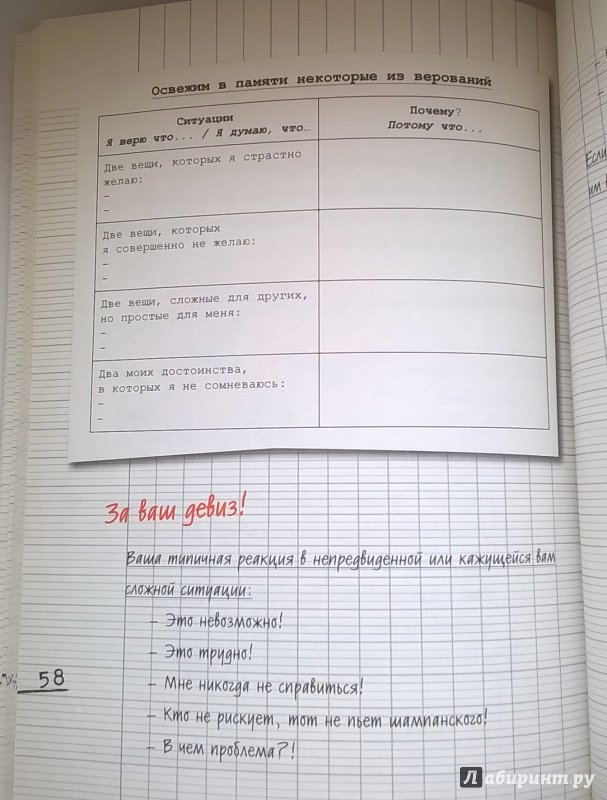 Освежим в памяти некоторые из верований
Ситуации
Я верю что... / Я думаю, что…
Почему?
Потому что...
Две вещи, которых я страстно
желаю:
-
-
Две вещи, которых
я совершенно не желаю:
-
-
Две вещи, сложные для других,
но простые для меня:
-
-
Два моих достоинства,
в которых я не сомневаюсь:
-
-
За ваш девиз!
Ваша типичная реакция в непредвиденной или кажущейся вам
сложной ситуации:
– Это невозможно!
– Это трудно!
– Мне никогда не справиться!
– Кто не рискует, тот не пьет шампанского!
– В чем проблема?!
58
Если
им
Лабиринт.ру